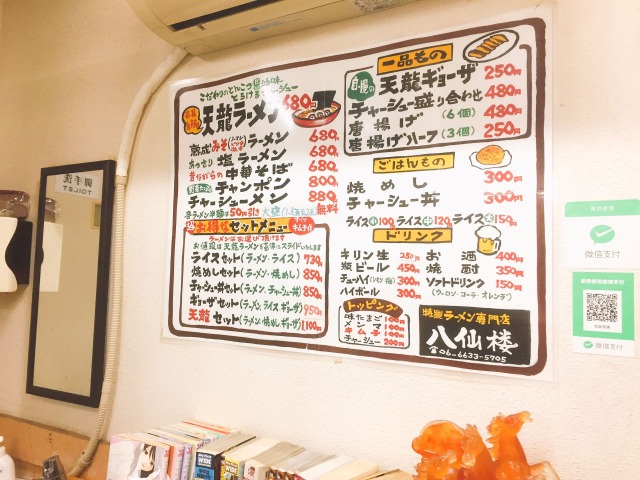 こだわりのとんこつ醤油味
とろけるチャーシュー
天龍ラーメン 680円
熟成みそラーメン 680円
あっさり 塩ラーメン 680円
昔ながらの 中華そば 680円
チャンポン 800円
チャーシューメン 880円
各ラーメン半麺は50円引き 大盛 無料
お得なセットメニュー
ラーメンはお選び頂けます
お値段は天龍ラーメンを基準にスライドいたします
ライスセット(ラーメン・ライス) 730円
焼めしセット(ラーメン・焼めし) 850円
チャーシュー丼セット(ラーメン・チャーシュー丼) 850円
ギョーザセット(ラーメン・ライス・ギョーザ) 950円
天龍セット(ラーメン・焼めし・ギョーザ) 1,100円
一品もの
自慢の 天龍ギョーザ 250円
チャーシュー盛り合わせ 480円
唐揚げ (6個) 480円
唐揚げハーフ (3個) 250円
ごはんもの
焼めし 300円
チャーシュー丼 300円
ライス小 100円 ライス中 120円 ライス大 150円
ドリンク
キリン生 250円
瓶ビール 450円
チューハイ 300円
ハイボール 300円
お酒 400円
焼酎 350円
ソフトドリンク 150円
(ウーロン・コーラ・オレンジ)
トッピング
味たまご 100円
メンマ 100円
キムチ 100円
チャーシュー 200円
特製ラーメン専門店
八仙楼
☎06-6633-5705
微信支付
微信支付
TOILET
WIDE